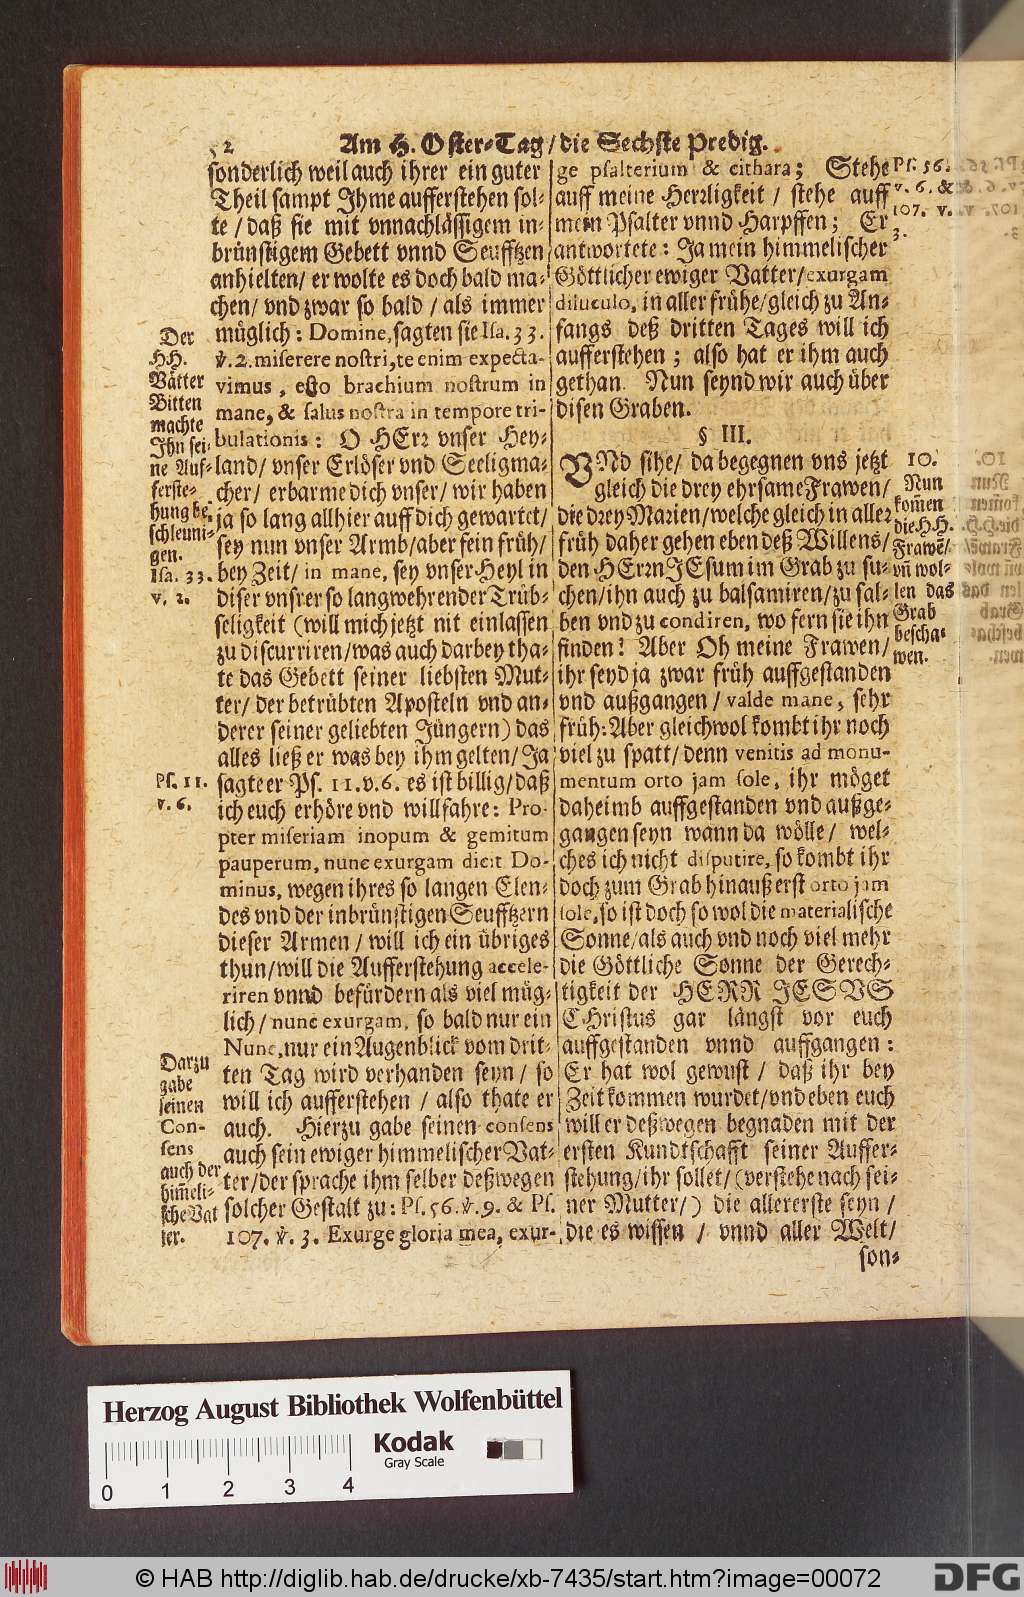 52 Am H. Oster-Tag/ die Sechste Predig.
sonderlich weil auch ihrer ein guter
Theil sampt Ihme aufferstehen sol-
te / daß sie mit vnnachlässigem in-
brünstigem Gebett vnnd Seufftzen
anhielten/ er wolte es doch bald ma-
chen/ vnd zwar so bald / als immer
müglich: Domine, sagten sie Isa. 33.
v. 2. miserere nostri, te enim expecta-
vimus, esto brachium nostrum in
mane, & salus nostra in tempore tri-
bulationis: O HErr vnser Hey-
land/ vnser Erlöser vnd Seeligma-
cher/ erbarme dich vnser/ wir haben
ja so lang allhier auff dich gewartet/
sey nun vnser Armb/ aber fein früh/
bey Zeit/ in mane, sey vnser Heyl in
diser vnsrer so langwehrender Trüb-
seligkeit (will mich jetzt nit einlassen
zu discurriren/ was auch darbey tha-
te das Gebett seiner liebsten Mut-
ter/ der betrübten Aposteln vnd an-
derer seiner geliebten Jüngern) das
alles ließ er was bey ihm gelten/ Ja
sagte er Ps. 11. v. 6. es ist billig/ daß
ich euch erhöre vnd willfahre: Pro-
pter miseriam inopum & gemitum
pauperum, nunc exurgam dicit Do-
minus, wegen ihres so langen Elen-
des vnd der inbrünstigen Seufftzern
dieser Armen / will ich ein übriges
thun/ will die Aufferstehung accele-
riren vnnd befürdern als viel müg-
lich/ nunc exurgam, so bald nur ein
Nunc, nur ein Augenblick vom drit-
ten Tag wird verhanden seyn / so
will ich aufferstehen / also thate er
auch. Hierzu gabe seinen consens
auch sein ewiger himmelischer Vat-
ter/ der sprache ihm selber deßwegen
solcher Gestalt zu: Ps. 56. v. 9. & Ps.
107. v. 3. Exurge gloria mea, exur-
Der
HH.
Vätter
Bitten
machte
Ihn sei-
ne Auf-
ferste-
hung be-
schleuni-
gen.
Isa. 33.
v. 2.
Ps. 11.
v. 6.
Darzu
gabe
seinen
Con-
sens
auch der
him̃eli-
sche Vat
ter.
ge psalterium & cithara; Stehe
auff meine Herrligkeit / stehe auff
mein Psalter vnnd Harpffen; Er
antwortete: Ja mein himmelischer
Göttlicher ewiger Vatter/ exurgam
diluculo, in aller frühe/ gleich zu An-
fangs deß dritten Tages will ich
aufferstehen; also hat er ihm auch
gethan. Nun seynd wir auch über
disen Graben.
§ III.
VNd sihe/ da begegnen vns jetzt
gleich die drey ehrsame Frawen/
die drey Marien/ welche gleich in aller
früh daher gehen eben deß Willens/
den HErrn JEsum im Grab zu su-
chen/ ihn auch zu balsamiren/ zu sal-
ben vnd zu condiren, wo fern sie ihn
finden! Aber Oh meine Frawen/
ihr seyd ja zwar früh auffgestanden
vnd außgangen/ valde mane, sehr
früh: Aber gleichwol kombt ihr noch
viel zu spatt/ denn venitis ad monu-
mentum orto jam sole, ihr möget
daheimb auffgestanden vnd außge-
gangen seyn wann da wölle/ wel-
ches ich nicht disputire, so kombt ihr
doch zum Grab hinauß erst orto jam
sole, so ist doch so wol die materialische
Sonne/ als auch vnd noch viel mehr
die Göttliche Sonne der Gerech-
tigkeit der HERR JESVS
CHristus gar längst vor euch
auffgestanden vnnd auffgangen:
Er hat wol gewust / daß ihr bey
Zeit kommen wurdet/ vnd eben euch
will er deßwegen begnaden mit der
ersten Kundtschafft seiner Auffer-
stehung/ ihr sollet/ (verstehe nach sei-
ner Mutter/) die allererste seyn /
die es wissen / vnnd aller Welt/
son-
Ps. 56.
v. 6. &
107. v.
3.
10.
Nun
kom̃en
die HH.
Frawẽ/
vñ wol-
len das
Grab
bescha-
wen.
Herzog August Bibliothek Wolfenbüttel
Kodak
Gray Scale
0 1 2 3 4
© HAB http://diglib.hab.de/drucke/xb-7435/start.htm?image=00072
DFG